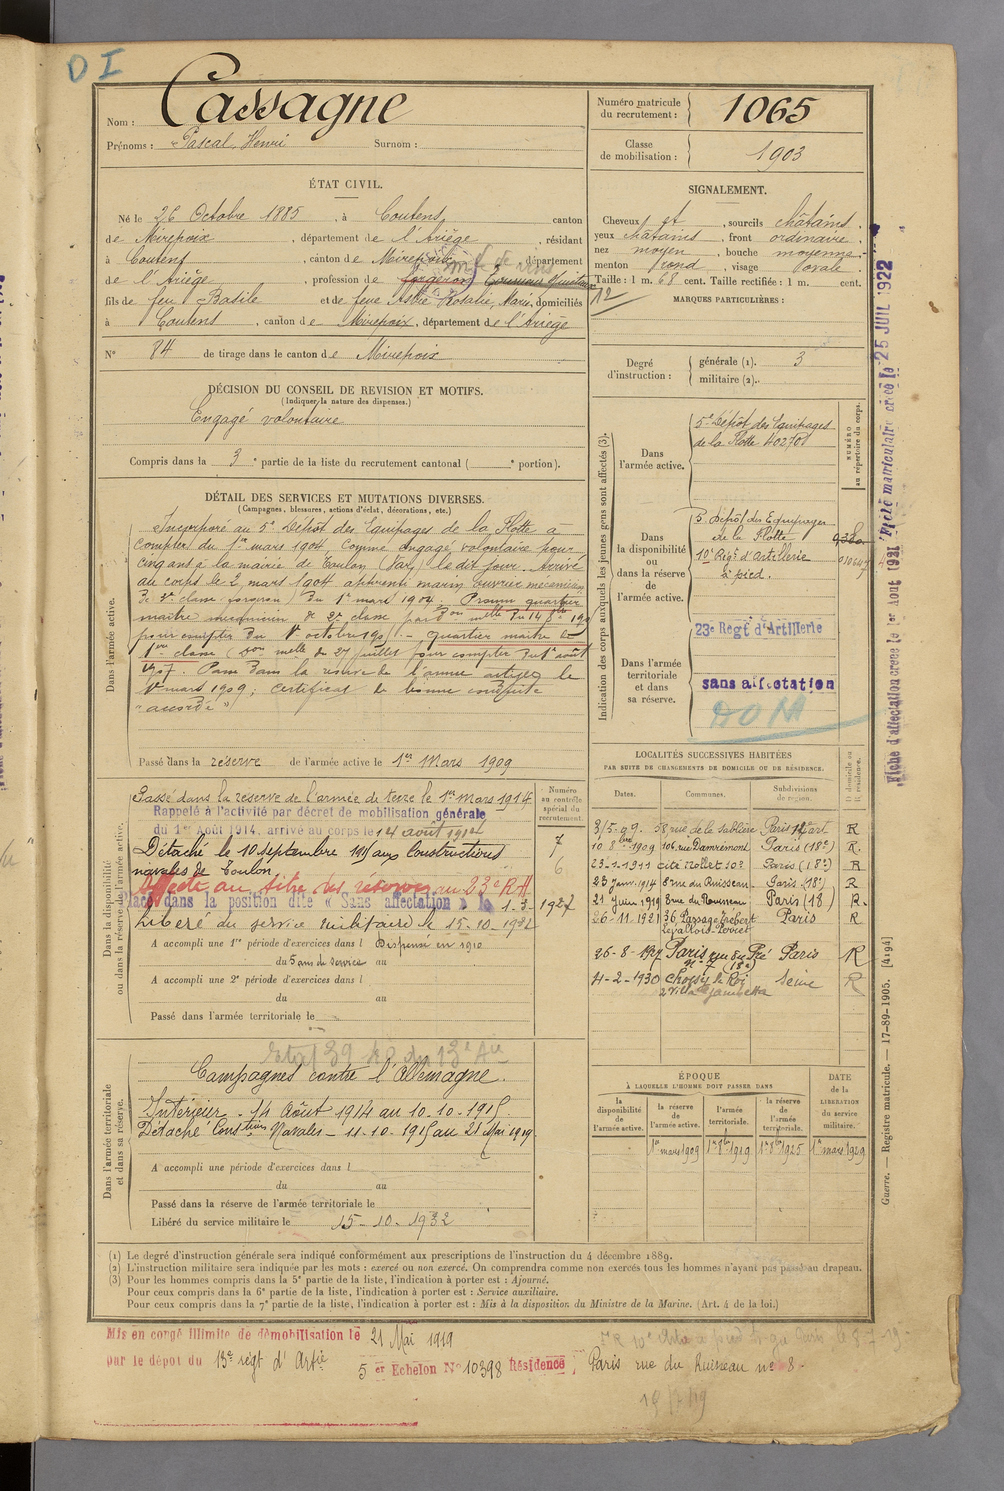 D I
Nom : Cassagne
Prénoms : Pascal, Henri Surnom :
Numéro matricule du recrutement : 1065
Classe de mobilisation : 1903
ÉTAT CIVIL.
Né le 26 Octobre 1885, à Coutens, canton
de Mirepoix, département de l'Ariège, résidant
à Coutens, canton de Mirepoix, département
de l'Ariège, profession de forgeron
fils de feu Basile et de feue Astre Rosalie, Marie, domiciliés
à Coutens, canton de Mirepoix, département de l'Ariège
N° 84 de tirage dans le canton de Mirepoix
SIGNALEMENT.
Cheveux et, sourcils châtains.
yeux châtains, front ordinaire.
nez moyen, bouche moyenne.
menton rond, visage ovale.
Taille : 1 m. 68 cent. Taille rectifiée : 1 m. cent.
12
MARQUES PARTICULIÈRES :
Degré d'instruction : générale (1). 3
militaire (2).
DÉCISION DU CONSEIL DE REVISION ET MOTIFS.
(Indiquer la nature des dispenses.)
Engagé volontaire
Compris dans la 3e partie de la liste du recrutement cantonal ( e portion).
DÉTAIL DES SERVICES ET MUTATIONS DIVERSES.
(Campagnes, blessures, actions d'éclat, décorations, etc.)
Dans l'armée active.
Incorporé au 5e Dépôt des Equipages de la Flotte à
compter du 1er mars 1904 comme engagé volontaire pour
cinq ans à la mairie de Toulon (Var) le dit jour. Arrivé
au corps le 2 mars 1904 apprenti marin, ouvrier mécanicien
de 3e classe forgeron) du 1er mars 1904. Promu quartier
maître mécanicien de 2e classe par Don melle du 14
pour compter du 1er octobre 190 . - quartier maître de
1ère classe (Don melle du 27 juillet pour compter du 1er août
1907. Passé dans la réserve de l'armée active le
1er mars 1909; certificat de bonne conduite
"accordé"
Passé dans la réserve de l'armée active le 1er Mars 1909
Indication des corps auxquels les jeunes gens sont affectés (3).
NUMÉRO au répertoire du corps.
Dans l'armée active.
5e Dépôt des Equipages
de la Flotte 40270
Dans la disponibilité ou dans la réserve de l'armée active.
5 Dépôt des Equipages
de la Flotte
10e Régt d'Artillerie
à pied.
23e Régt d'Artillerie
Dans l'armée territoriale et dans sa réserve.
sans affectation
Dans la disponibilité ou dans la réserve de l'armée active.
Numéro au contrôle spécial du recrutement.
Passé dans la réserve de l'armée de terre le 1er Mars 1914
Rappelé à l'activité par décret de mobilisation générale
du 1er Août 1914. arrivé au corps le 14 août 1914
Détaché le 10 septembre 1915 aux Constructions
navales de Toulon
7
6
Affecté au titre des réserves au 23e RA
Placé dans la position dite « Sans affectation » le 1-3- 1927
Libéré du service militaire le 15-10-1932
A accompli une 1re période d'exercices dans l Dispensé en 1910
du 5 ans de service au
A accompli une 2e période d'exercices dans l
du au
Passé dans l'armée territoriale le
LOCALITÉS SUCCESSIVES HABITÉES
PAR SUITE DE CHANGEMENTS DE DOMICILE OU DE RÉSIDENCE.
Dates. Communes. Subdivisions de région. D domicile ou R résidence.
3/5-09. 58 rue de la Sablière Paris 14e art R
10 8bre 1909 106 rue Damrémont Paris (18e) R.
23-1-1911 cité Nollet 10e Paris (18e) R
23 Janv. 1914 8 rue du Ruisseau Paris (18e) R
21 Juin 1919 8 rue du Ruisseau Paris (18) R
26-11-1921 36 Passage Trébert Paris R
Levallois-Perret
26-8-1927 Paris rue du Pré Paris R
n° 7 (18e)
4-2-1930 Choisy le Roi Seine R
2 Villa Gambetta
Dans l'armée territoriale et dans sa réserve.
Campagnes contre l'Allemagne.
Intérieur - 14 Août 1914 au 10-10-1915.
Détaché Constions Navales - 11-10-1915 au 21 Mai 1919.
A accompli une période d'exercices dans l
du au
Passé dans la réserve de l'armée territoriale le
Libéré du service militaire le 15-10-1932
ÉPOQUE
À LAQUELLE L'HOMME DOIT PASSER DANS
DATE de la LIBÉRATION du service militaire.
la disponibilité de l'armée active. la réserve de l'armée active. l'armée territoriale. la réserve de l'armée territoriale.
1er mars 1909 1er 8bre 1919 1er 8bre 1925 1er mars 1929
(1) Le degré d'instruction générale sera indiqué conformément aux prescriptions de l'instruction du 4 décembre 1889.
(2) L'instruction militaire sera indiquée par les mots : exercé ou non exercé. On comprendra comme non exercés tous les hommes n'ayant pas passé au drapeau.
(3) Pour les hommes compris dans la 5e partie de la liste, l'indication à porter est : Ajourné.
Pour ceux compris dans la 6e partie de la liste, l'indication à porter est : Service auxiliaire.
Pour ceux compris dans la 7e partie de la liste, l'indication à porter est : Mis à la disposition du Ministre de la Marine. (Art. 4 de la loi.)
Mis en congé illimité de démobilisation le 21 Mai 1919
par le dépôt du 13e régt d'Artie
5 er Echelon N° 10398 Résidence, Paris rue du Ruisseau n° 8-
Guerre. — Registre matricule. — 17-89-1905. [4194]
Fiche d'affectation créée le 1er Août 1921 Fiche matriculaire créée le 25 JUIL 1922